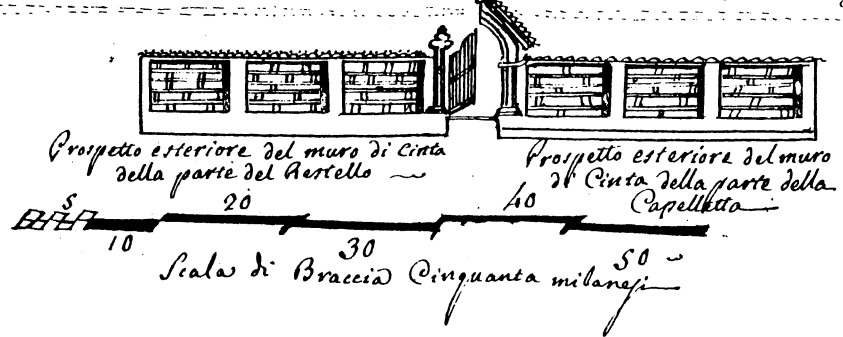 Prospetto esteriore del muro di Cinta
della parte del Restello
Prospetto esteriore del muro
di Cinta della parte della
Capelletta
5 10 20 30 40 50
Scala di Braccia Cinquanta milanesi